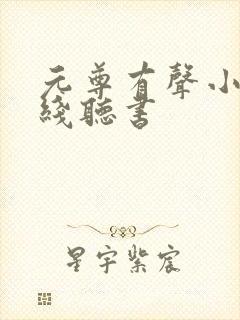 元尊有聲小
綫聽書
星宇紫宸